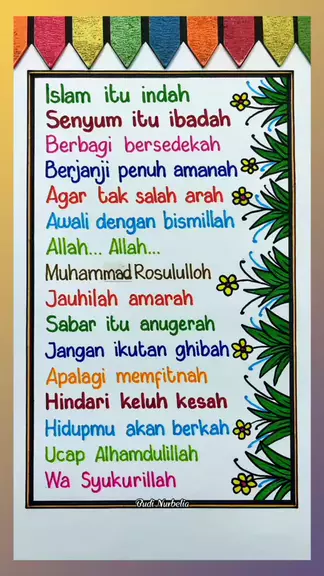 Islam itu indah
Senyum itu ibadah
Berbagi bersedekah
Berjanji penuh amanah
Agar tak salah arah
Awali dengan bismillah
Allah... Allah...
Muhammad Rosululloh
Jauhilah amarah
Sabar itu anugerah
Jangan ikutan ghibah
Apalagi memfitnah
Hindari keluh kesah
Hidupmu akan berkah
Ucap Alhamdulillah
Wa Syukurillah
Yudi Nurbelia